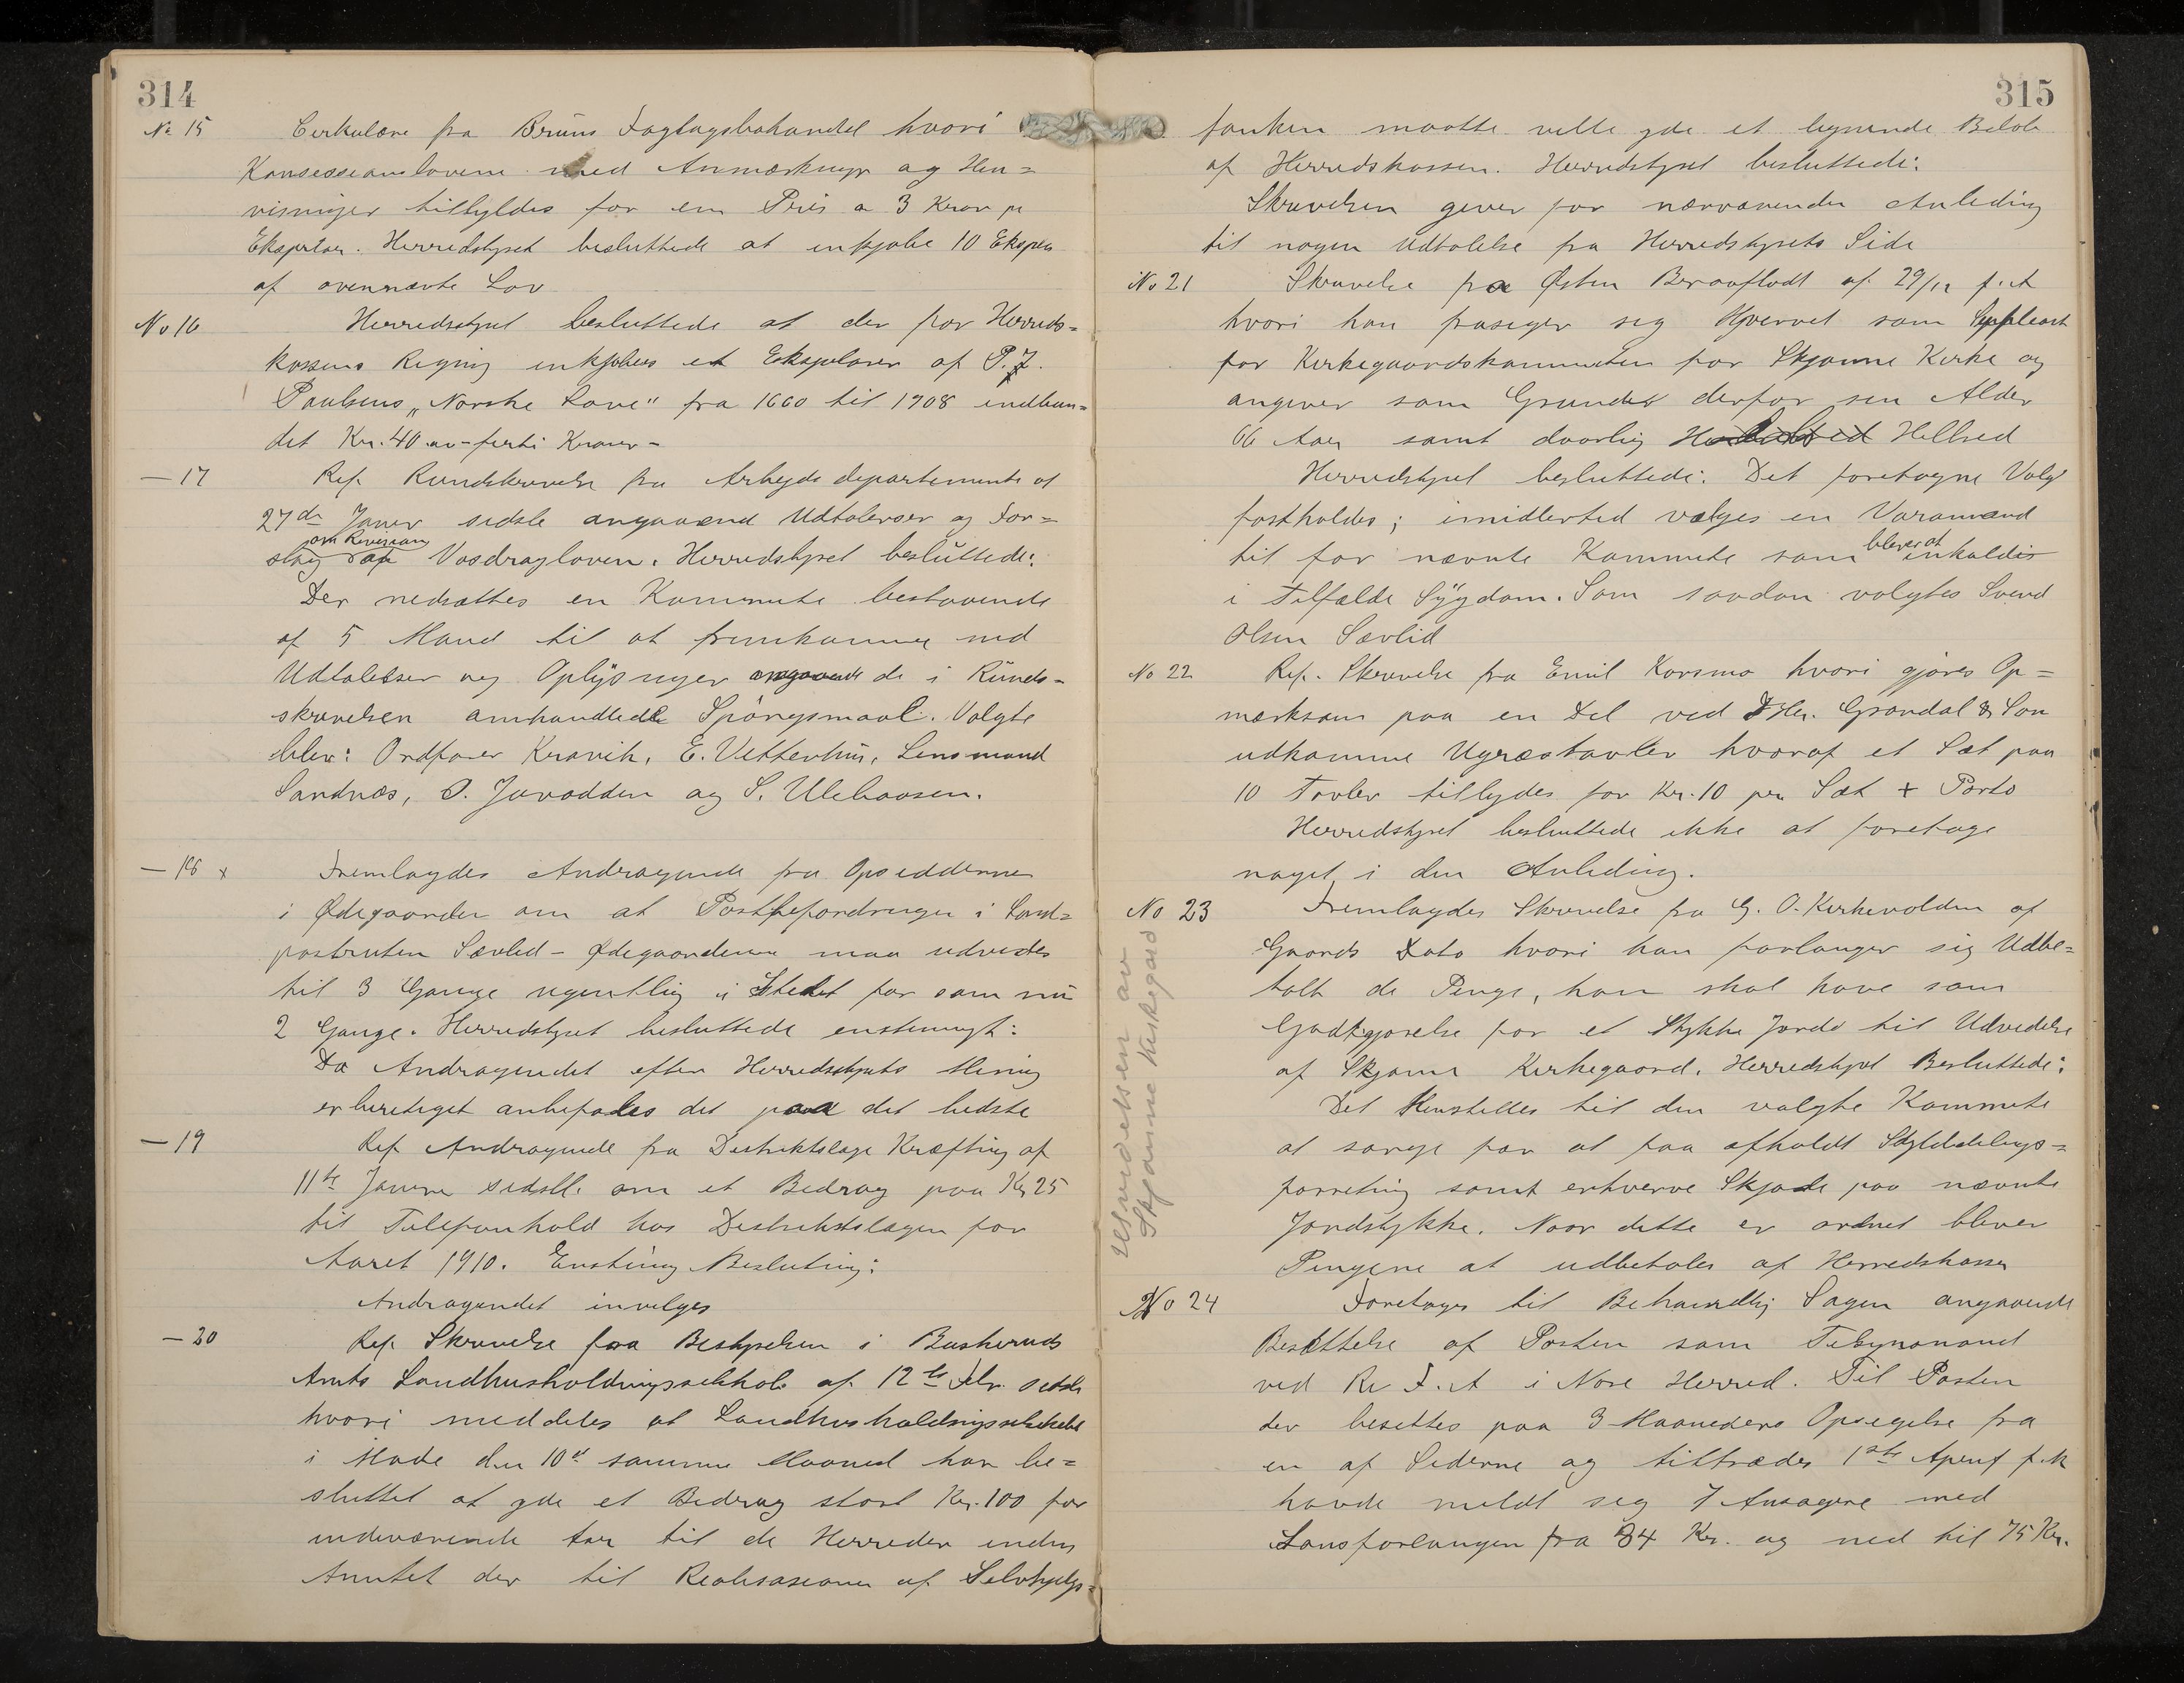 314
No 15 Cirkulære fra Bruns Fagtagsbohandel hvori
Konsessionslovene med Anmærknger og Hen=
visninger tilbydes for en Pris a 3 Kron pr
Eksprlar. Herredstyret besluttede at inkjøbe 10 Eksplr
af ovennævte Lov
No 16 Herredsstyret besluttede at der for Herreds=
kassens Regning inkjøbes et Eksplarer af P. J.
Paulsens „Norske Love" fra 1660 til 1908 indbun=
det Kr. 40 - førti Kroner -
— 17 Ref. Rundskrivelse fra Arbeids departementet af
27de Janur sidstl angaaend Udtalelser og For=
slag om Revision af Vasdragloven. Herredstyret besluttede:
Der nedsættes en Kommite bestaaende
af 5 Mand til at fremkomme med
Udtalelser og Oplysninger angaaende de i Runds=
skrivelsen omhandlede Spörgsmaal. Valgte
blev: Ordfører Kravik, E. Vetterhus, Lensmand
Sandnæs, O. Juvodden og S. Ulehaasen.
— 18 x Fremlagdes Andragende fra Opsidderne
i Ødegaarden om at Postbefordringen i Land=
postruten Sævlid - Ødegaardene maa udvides
til 3 Gange ugentlig i Stedet for som nu
2 Gange. Herredstyret besluttede enstemmigt:
Da Andragendet efter Herredsstyrets Mening
er berettiget anbefales det paa det bedste
— 19 Ref Andragende fra Distriktslæge Kræfting af
11te Januar sidstl. om et Bedrag paa Kr 25
til Telefonhold hos Distriktslægen for
Aaret 1910. Enstemig Beslutning:
Andragendet invilges
— 20 Ref. Skrivelse fra Bestyrelsen i Buskeruds
Amts Landhusholdningsselskab af 12te Febr. sidstl
hvori meddeles at Landhusholdningsselskabet
i Møde den 10d samme Maaned har be=
sluttet at yde et Bedrag stort Kr. 100 for
indeværende Aar til de Herreder inden
Amtet der til Realisasionen af Selvhjelps=
315
tanken maatte ville yde et lignende Beløb
af Herredskassen. Herredstyret besluttede:
Skrivelsen giver for nærværende Anledning
til nogen Udtalelse fra Herredstyrets Side
No 21 Skrivelse fra Østen Beraaflodt af 29/12 f. A
hvori han frasiger sig Hvervet som Suppleant
for Kirkegaardskommiteen for Skjønne Kirke og
angiver som Grunder derfor sin Alder
66 Aar samt daarlig Helbred
Herredstyret besluttede: Det foretagne Valg
fastholdes; imidlertid vælges en Varamand
til for nævnte Kommite som bliver at inkaldes
i Tilfælde Sygdom. Som saadan valgtes Svend
Olsen Sævlid
No 22 Ref. Skrivelse fra Emil Korsmo hvori gjøres Op=
mærksom paa en Del ved Hr. Grøndal & Søn
udkomne Ugræstavler hvoraf et Sæt paa
10 Tavler tilbydes for Kr. 10 pr. Sæt + Porto
Herredstyret besluttede ikke at foretage
noget i den Anledning.
No 23 Fremlagdes Skrivelse fra G. O. Kirkevolden af
Gaards Dato hvori han forlanger sig Udbe=
talt de Penge, han skal have som
Godtgjørelse for et Stykke Jord til Udvidelse
af Skjønne Kirkegaard. Herredstyret Besluttede:
Det Henstilles til den valgte Kommite
at sørge for at faa afholdt Skylddelings=
forretning samt erhverve Skjøde paa nævnte
Jordstykke. Naar dette er ordnet bliver
Pengene at udbetales af Herredskassen
Utvidelsen av
Skjønne kirkegård
No 24 Foretages til Behandling Sagen angaaende
Besættelse af Posten som Tilsynsmand
ved Rv F. A i Nore Herred. Til Posten
der besettes paa 3 Maaneders Opsigelse fra
en af Siderne og tiltrædes 1ste April f. k
havde meldt sig 7 Ansøgere med
Lønsforlangen fra 84 Kr. og ned til 75 Kr.